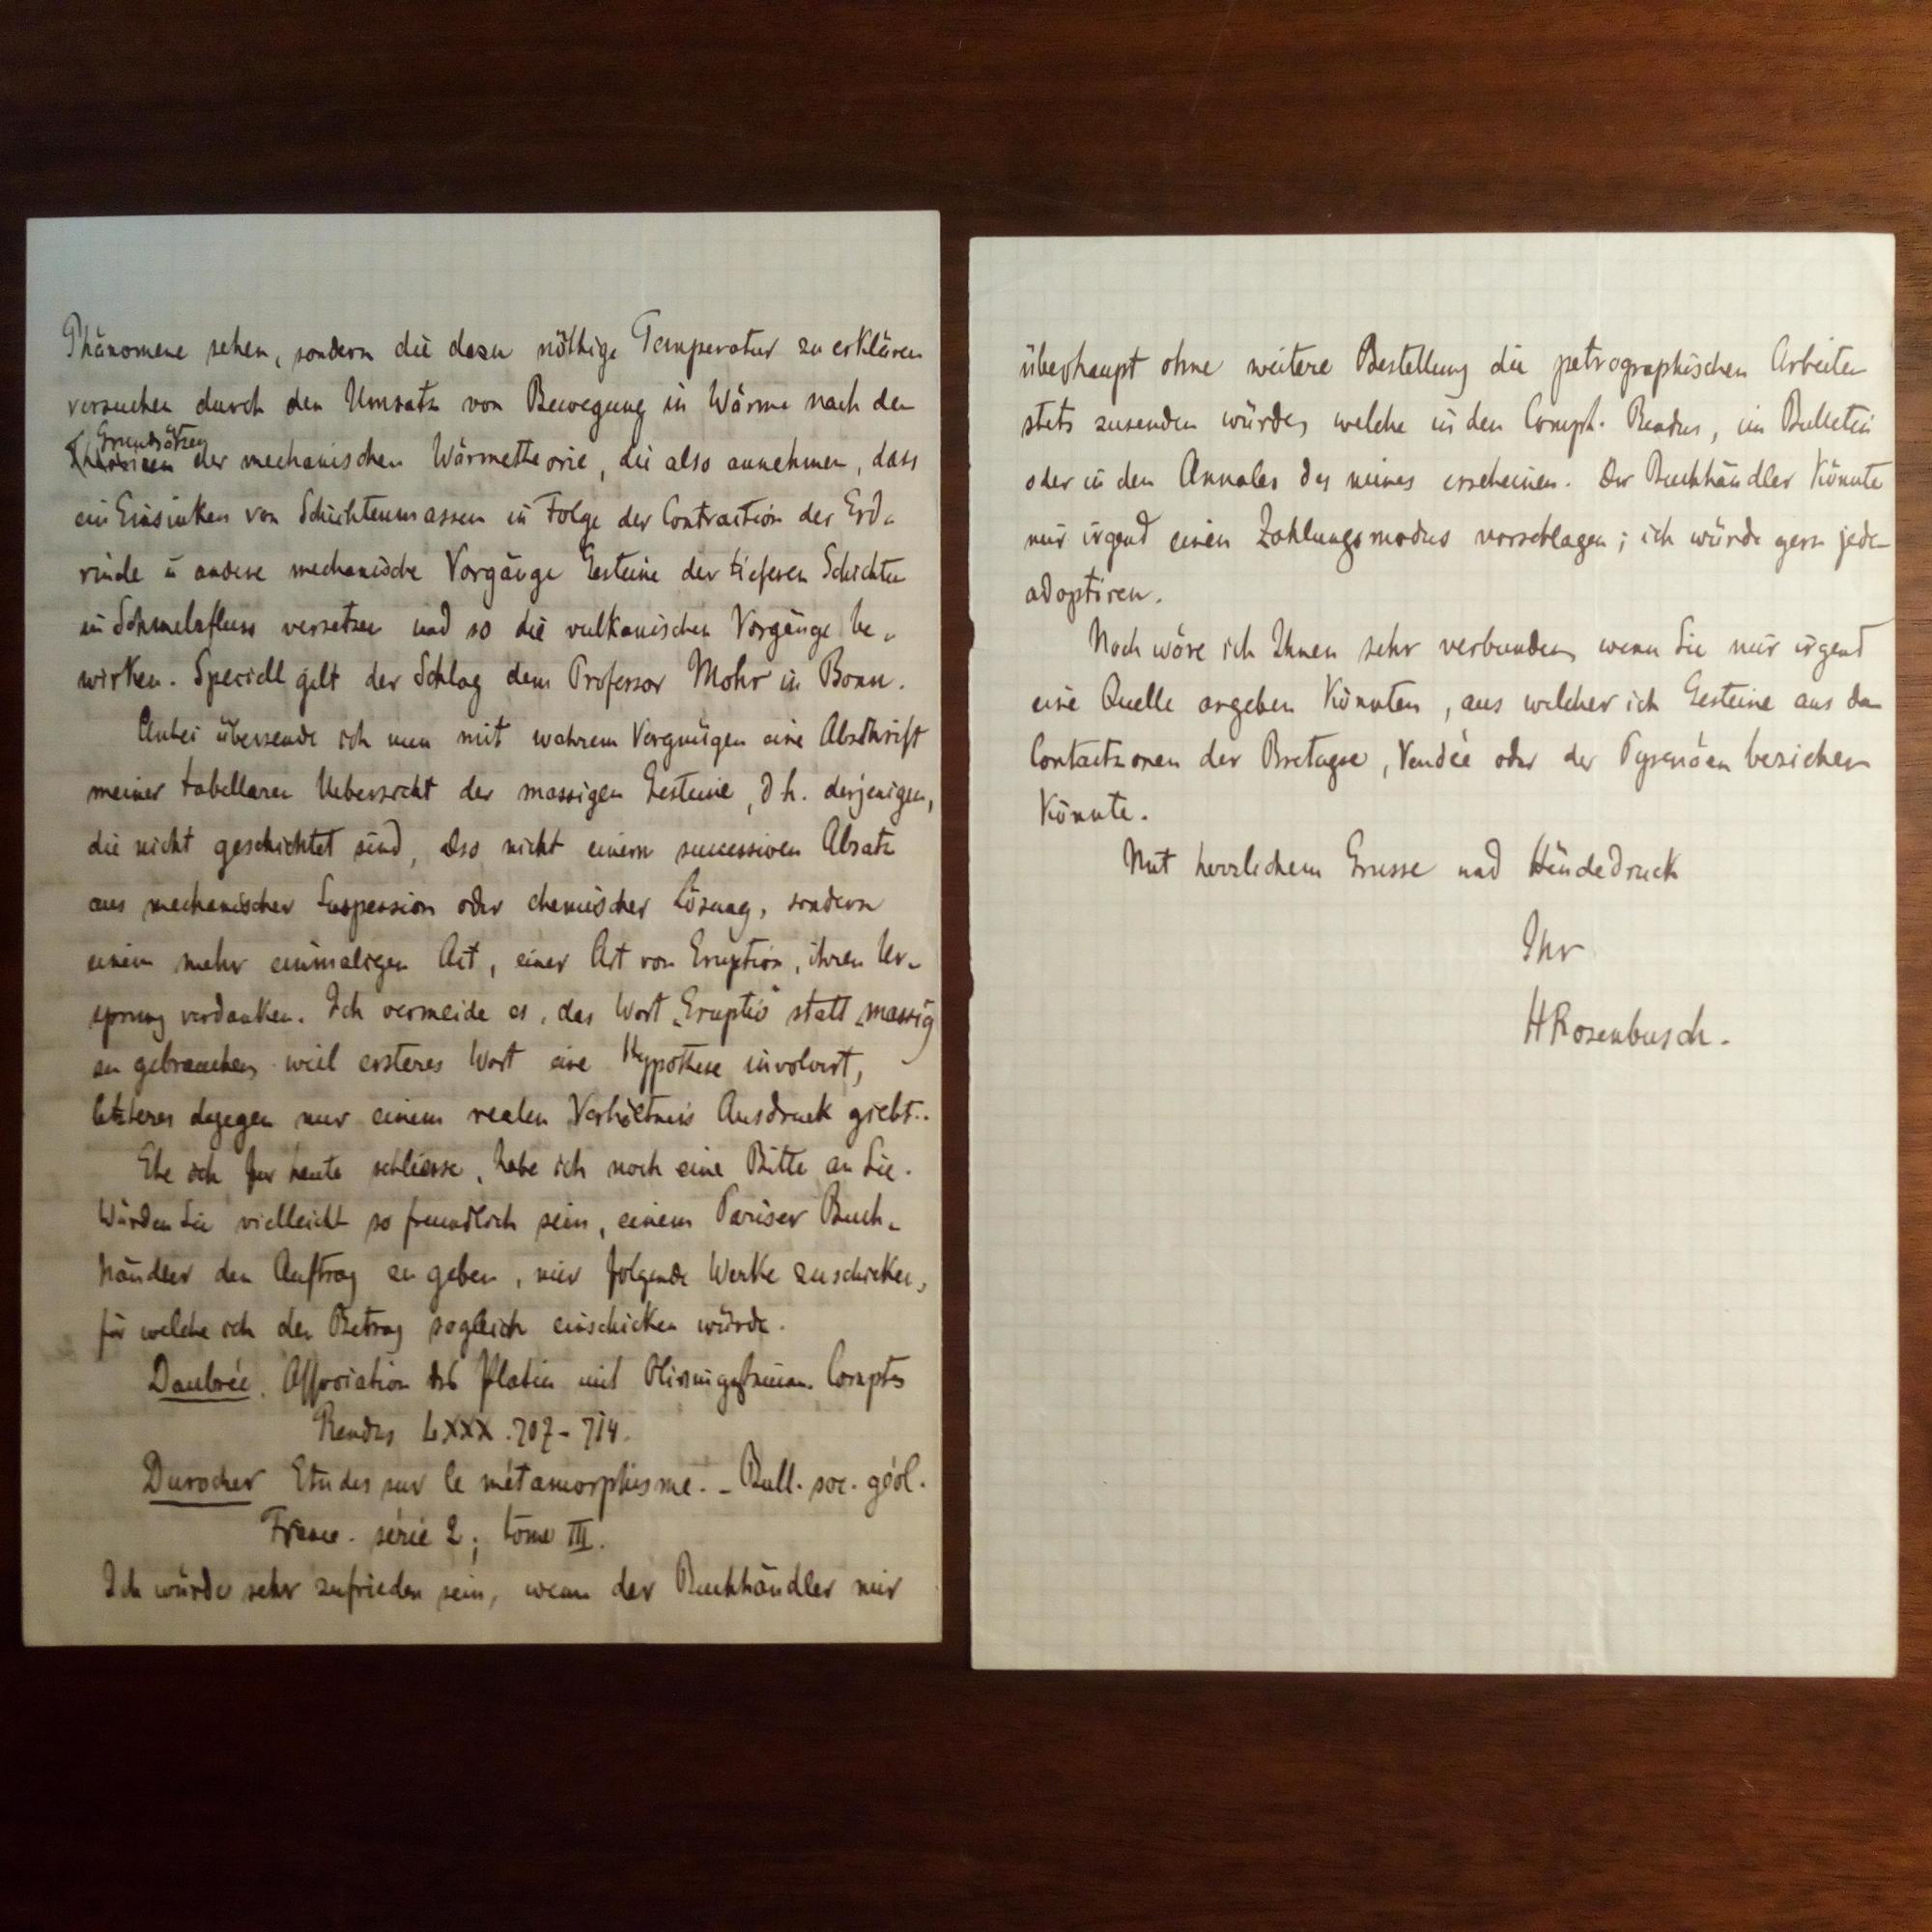 Phänomene sehen, sondern die dazu nöthige Temperatur zu erklären
versuchen durch den Umsatz von Bewegung in Wärme nach den
Grundsätzen
der mechanischen Wärmetheorie, die also annehmen, dass
ein Einsinken von Schichtenmassen in Folge der Contraction der Erd-
rinde u andere mechanische Vorgänge Gesteine der tieferen Schichten
in Schmelzfluss versetzen und so die vulkanischen Vorgänge be-
wirken. Speciell gilt der Schlag dem Professor Mohr in Bonn.
Anbei übersende ich nun mit wahrem Vergnügen eine Abschrift
meiner tabellaren Uebersicht der massigen Gesteine, d h. derjenigen,
die nicht geschichtet sind, also nicht einem successiven Absatz
aus mechanischer Suspension oder chemischer Lösung, sondern
einem mehr einmaligen Act, einer Art von Eruption, ihren Ur-
sprung verdanken. Ich vermeide es, das Wort „Eruptiv" statt „massig
zu gebrauchen, weil ersteres Wort eine Hypothese involvirt,
letzteres dagegen nur einem realen Verhältniss Ausdruck giebt..
Ehe ich für heute schliesse, habe ich noch eine Bitte an Sie.
Würden Sie vielleicht so freundlich sein, einem Pariser Buch-
händler den Auftrag zu geben, mir folgende Werke zuschicken,
für welche ich den Betrag sogleich einschicken würde.
Daubrée. Association des Platin mit Olivingesteinen. Comptes
Rendus LXXX. 707-714.
Durocher Etudes sur le métamorphisme. - Bull. soc. géol.
France. série 2; tome III.
Ich würde sehr zufrieden sein, wenn der Buchhändler mir
überhaupt ohne weitere Bestellung die petrographischen Arbeiten
stets zusenden würde, welche in den Compt. Rendus, im Bulletin
oder in den Annales des mines erscheinen. Der Buchhändler könnte
mir irgend einen Zahlungsmodus vorschlagen; ich würde gern jeden
adoptiren.
Noch wäre ich Ihnen sehr verbunden, wenn Sie mir irgend
eine Quelle angeben könnten, aus welcher ich Gesteine aus den
Contactzonen der Bretagne, Vendée oder der Pyrenäen beziehen
könnte.
Mit herzlichem Grusse und Händedruck
Ihr
HRosenbusch.